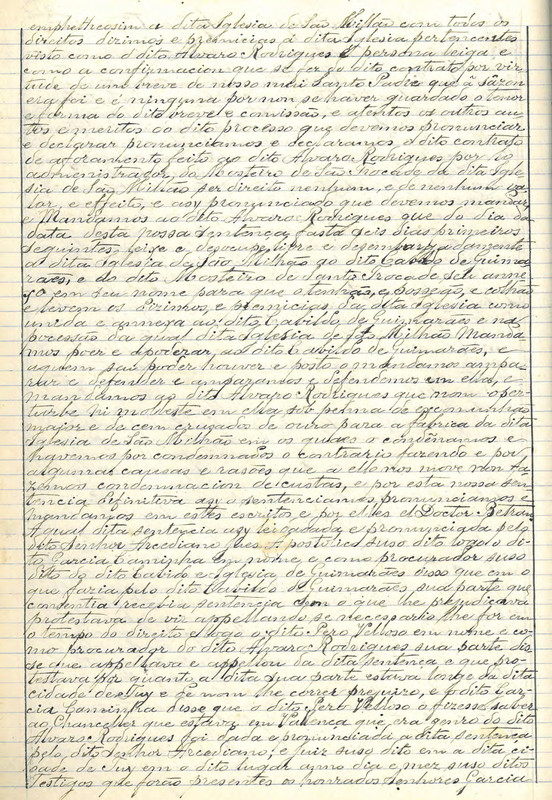 emphetheosim a dita Iglesia de São Milhão com todos os
direitos dirimos e premicias á dita Iglesia pertencentes
visto como o dito Alvaro Rodrigues é persona leiga e
como a confirmacion que se fez do dito contrato por vir-
tude de um breve de nosso mui Santo Padre que á sazon
era foi e é ninguna por non se haver guardado o tenor
e forma do dito breve e comissão, e atentos os outros au-
tos e meritos do dito processo que devemos pronunciar
e declarar pronunciamos e declaramos o dito contrato
de aforamento feito ao dito Alvaro Rodrigues por
administrador do Mosteiro de São Trocade da dita Igle-
sia de São Milhão ser direito nenhum, e de nenhum va-
lor, e effeito, e asy pronunciado que devemos mandar
e Mandamos ao dito Alvaro Rodrigues que do dia da
data desta nossa sentença fasta seis dias primeiros
seguintes, leixe e desocupe, libre e desembargadamente
a dita Iglesia de São Milhão ao dito Cabido de Guima-
raes, e do dito Mosteiro de Santo Trocade seu anne-
xo em seu nome para que o tenhão, e possoão, e colhão
e levem os Dirimos, e premicias da dita Iglesia como
unida e annexa ao dito Cabildo de Guimarães e na
pocessão da qual dita Iglesia de São Milhão Manda-
mos poer e apoderar, ao dito Cabildo de Guimarães, e
aquem seu poder houver e posto o mandamos ampa-
rar e defender e amparamos e defendemos em ella, e
mandamos ao dito Alvaro Rodrigues que nom oper-
turbe ni moleste em ella sob penna de excomunhão
major e de cem cruzados de ouro para a fabrica da dita
Iglesia de São Milhão em os quaes o condenamos e
havemos por condemnados o contrario fazendo e por
algumas causas e rasões que a ello nos move non fa-
zemos condemnacion de custas, e por esta nossa sen-
tencia difinitiva asy o sentenciamos pronunciamos e
mandamos em estes escritos e por elles el Doctor Beltran
Aqual dita sentencia asy leida dada e pronunciada pelo
dito Senhor Arcediano Juez Apostolico suso dito logo o di-
to Garcia Caminha em nome e como procurador suso
dito do dito Cabido e Iglesia de Guimarães disso que em o
que fazia pelo dito Cabildo de Guimarães sua parte que
consentia recebia sentencia e em o que lhe prejudicava
protestava de vir appellando se necessario lhe for em
o tempo do direito e logo o dito Pero Velloso em nome e co-
mo procurador do dito Alvaro Rodrigues sua parte dis-
se que appellava e appellou da dita sentença e que pro-
testava por quanto a dita sua parte estava longe da dita
cidade de Tuy e le nom lhe correr prejuizo, e fo dito Gar-
cia Caminha disse que o dito Pero Velloso o fizesse saber
ao Chanceller que estava em Valença que era genro do dito
Alvaro Rodrigues foi dada e pronunciada a dita sentença
pelo dito Senhor Arcediano, e juiz suso dito em a dita ci-
dade de Tuy em o dito lugar anno dia e mez suso ditos
Testigos que forão presentes os honrados Senhores Garcia